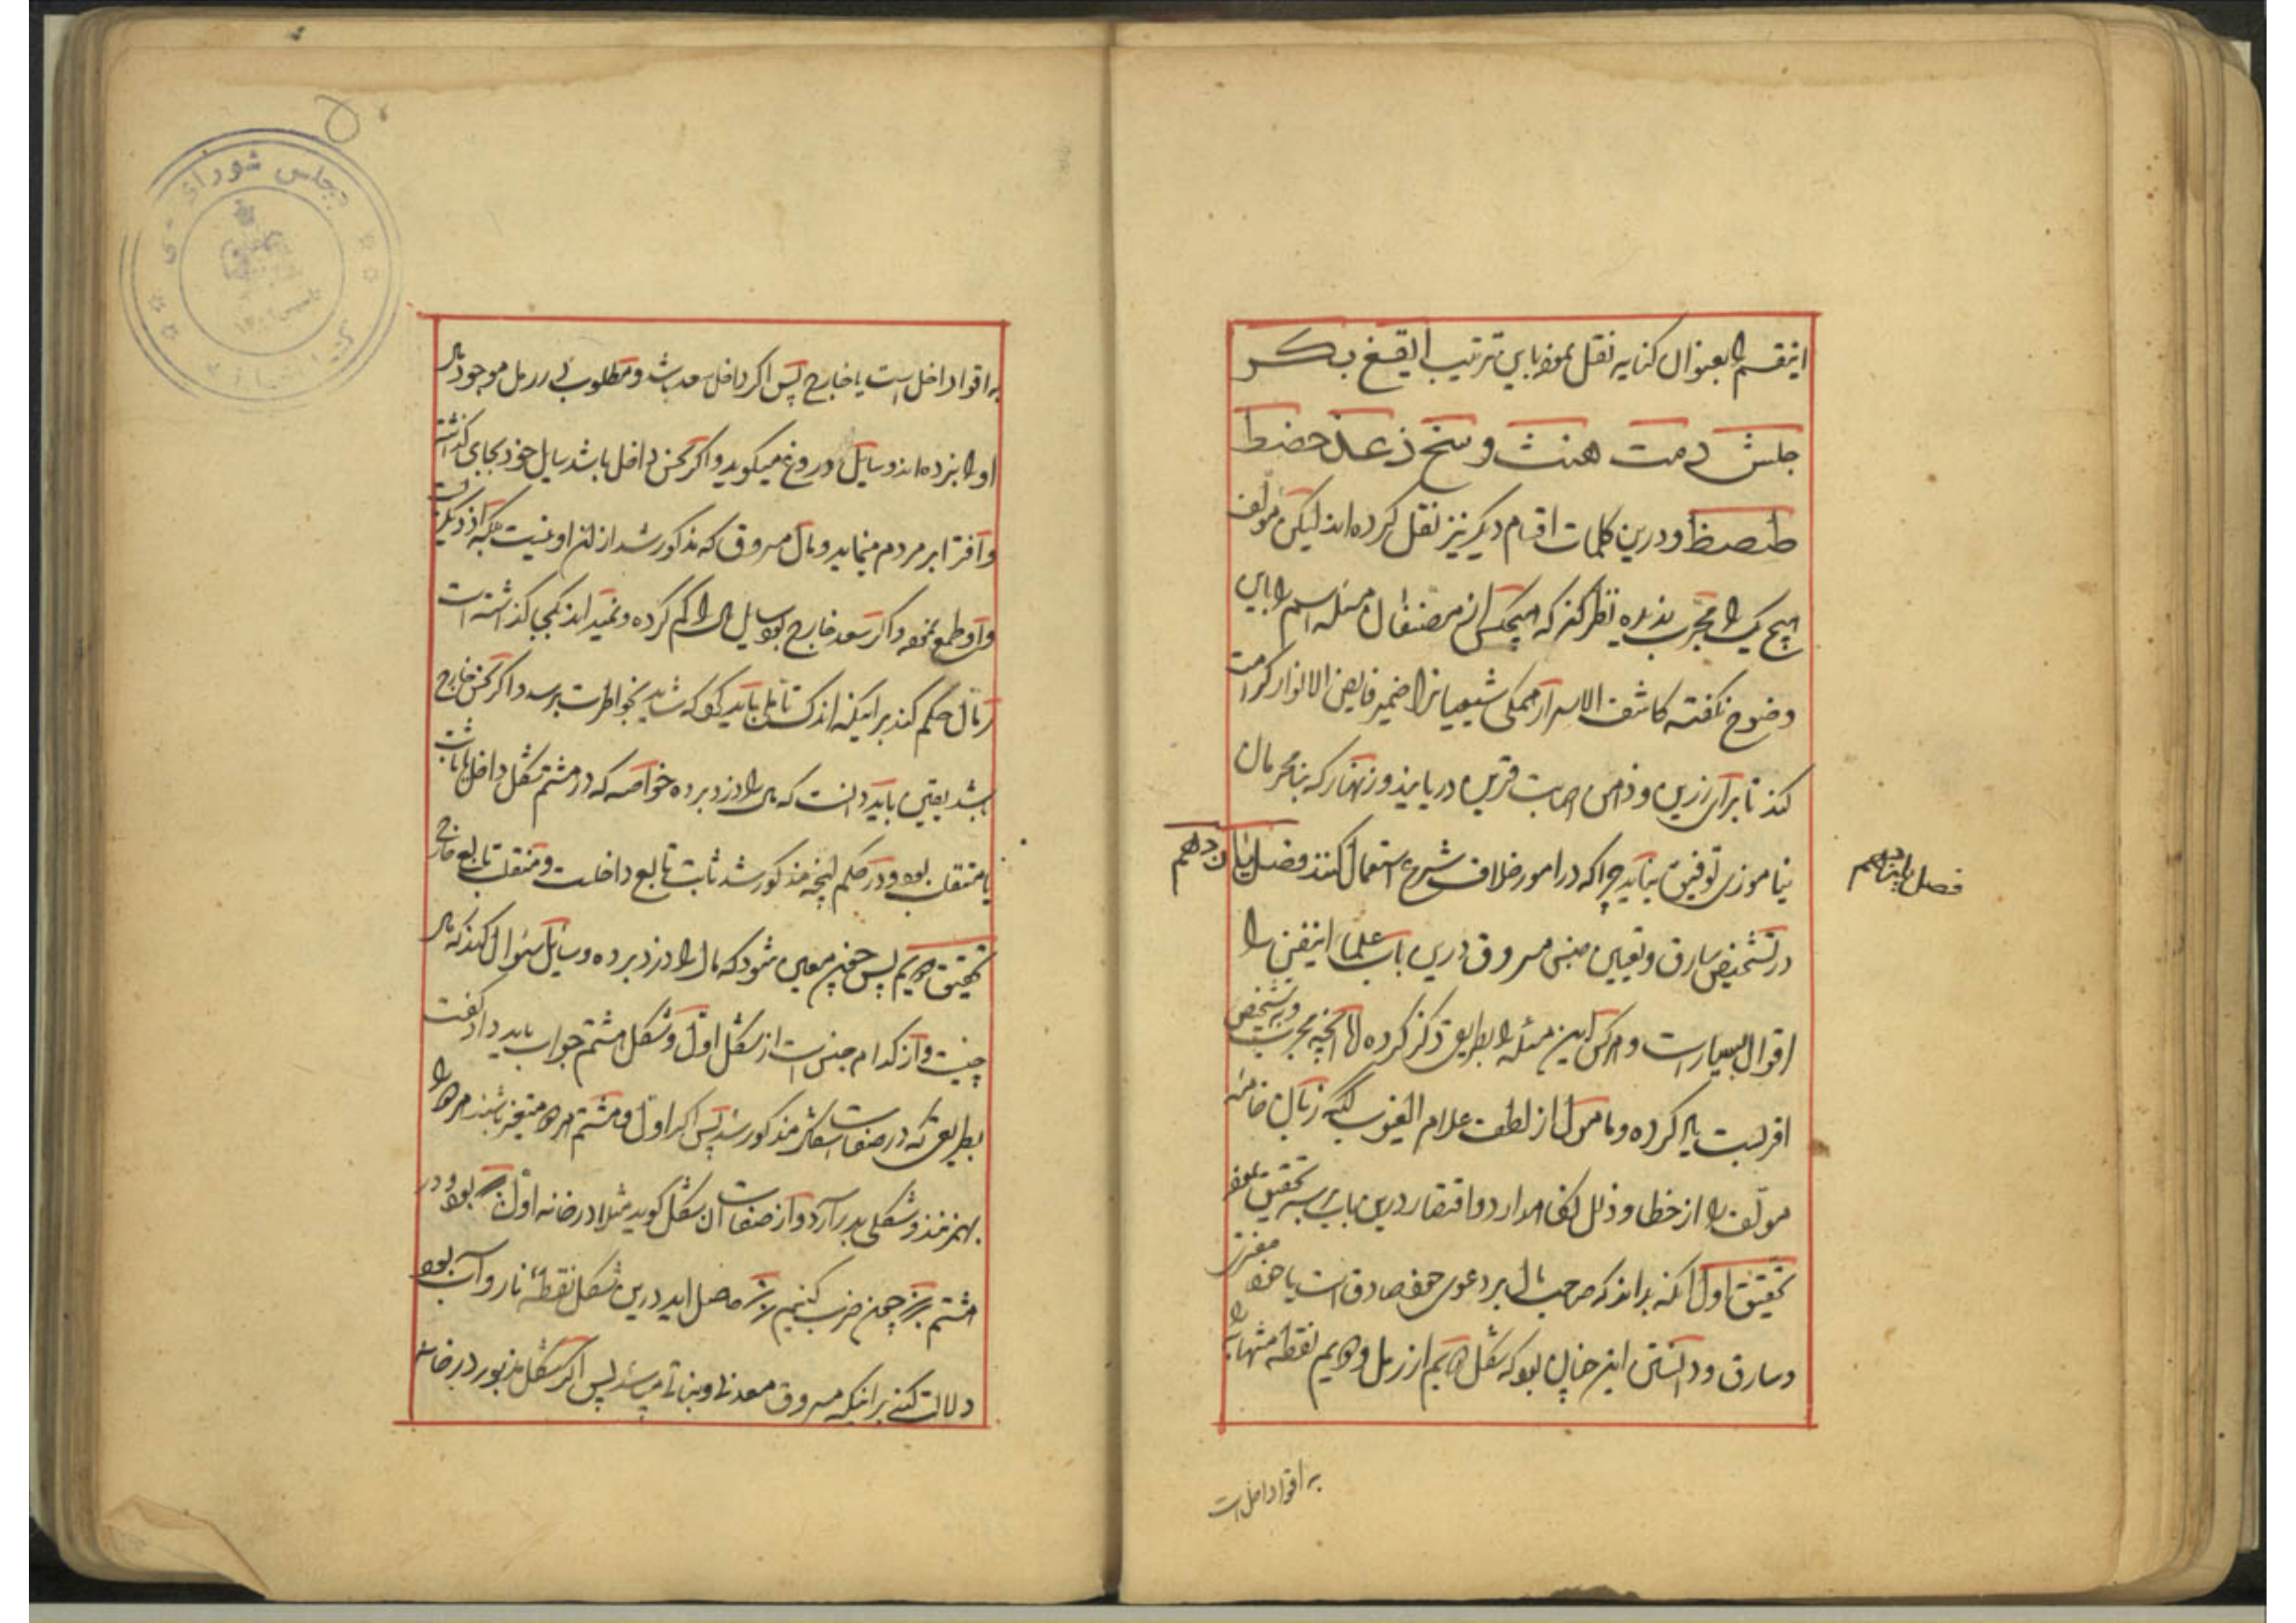 اینقسم را بعنوان کنایه نقل نموده باین ترتیب ایقغ بکر
جلش دمت هنث وسخ زعذ حضط
طصظ و درین کلمات اقسام دیگر نیز نقل کرده اند لیکن مؤلف
هیچ یک را مجرب ندیده نظر کند که هیچکس از مصنفان مسئله اسم را باین
وضوح نگفته کاشف الاسرار همکی شیعیانرا ضمیر فایض الانوار کرامت
کند تا برای زرین و ذهن اصابت قرین دریابند و زنهار که بنامحرمان
نیاموزی توفیق نیابد چرا که در امور خلاف شرع استعمال کنند فصل پانزدهم
فصل پانزدهم
در تشخیص سارق و تعیین جنس مسروق درین باب علما اینفن را
اقوال بسیار است و هرکس این مسئله را بطریقی ذکر کرده اما آنچه مجربست و بتشخیص
اقربست یاد کرده و مامول از لطف علام الغیوب آنکه زبان خامه
مؤلف را از خطا و ذلل نگاه دارد و اقتقار درین باب بر سه تحقیق نموده
تحقیق اول آنکه بداند که صاحب مال بر دعوی خود صادق است یا خود مفتری
و سارق و دانستن این چنان بود که شکل دهیم از رمل و دهیم نقطه منتهای را
به اقوا داخل است
به اقوا داخل است یا خارج پس اگر داخل سعد باشد و مطلوب در رمل موجود مال
او را بزده اند و سایل دروغ میگوید و اگر نحس داخل باشد سایل خود بجای گذاشته
و افترا بر مردم مینماید و مال مسروق که مذکور شد از ان او نیست بلکه از دیگریست
و او طمع نموده و اگر سعد خارج بود سایل مال را گم کرده و نمیداند کجا گذاشته است
رمال حکم کند بر اینکه اندک تامل باید که شاید بخواطرت برسد و اگر نحس خارج
باشد یقین باید دانست که مال را دزد برده خواصه که در هشتم شکل داخل یا ثابت
یا منقلب بود و در حکم آنچه مذکور شد ثابت تابع داخلست و منقلب تابع خارج
تحقیق دویم پس چون معین شود که مال را دزد برده و سایل سئوال کند که مال
چیست و از کدام جنس است از شکل اول و شکل هشتم جواب باید داد گفت
بطریقی که در صفات اشکال مذکور شد پس اگر اول و هشتم هر دو متغیر باشند هر دو را
بهم زنند و شکلی بدر آرد و از صفات آن شکل گوید مثلا در خانه اول بود و در
هشتم چون ضرب کنیم حاصل آید درین شکل نقطۀ نار و آب بود
دلالت کند بر اینکه مسروق معدنی و نباتی باشد پس اگر شکل مزبور در خانه
مجلس شورای ملی